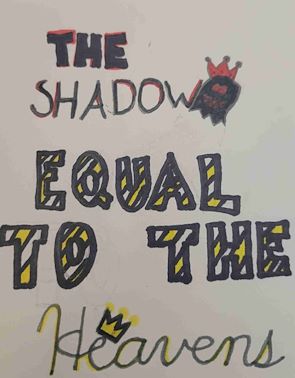 THE
SHADOW
EQUAL
TO THE
Heavens